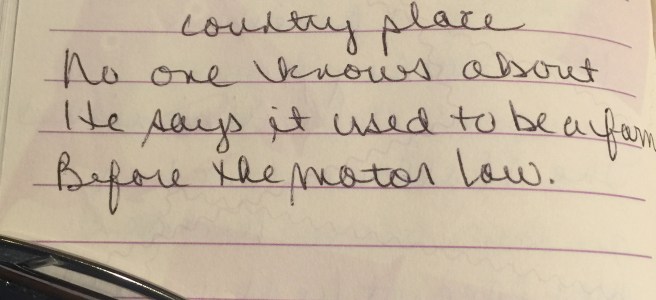 country place
No one knows about
He says it used to be a farm
Before the motor law.